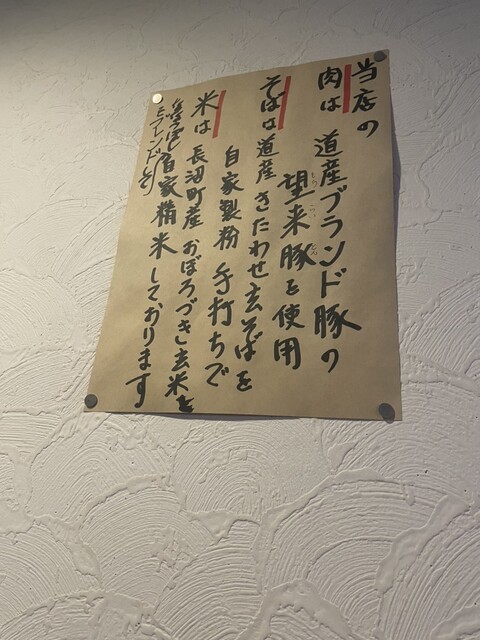 当店の
肉は 道産ブランド豚の
望来豚を使用
もうらいとん
そばは道産きたわせ玄そばを
自家製粉 手打ちで
米は 長沼町産 おぼろづき玄米を
自家精米しております
ブレンド